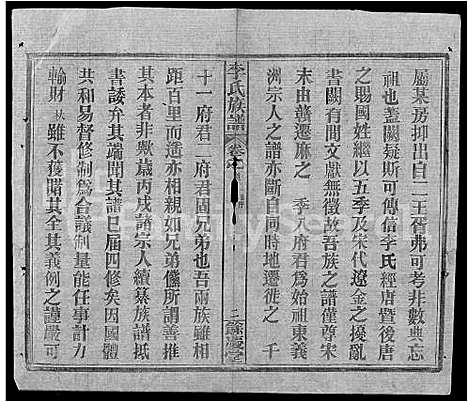 屬某房抑出自二王胥弗可考非數典忘
祖也蓋闕疑斯可傳信李氏經唐暨後唐
之賜國姓繼以五季及宋代遼金之擾亂
書闕有間文獻無徵故吾族之譜僅尊宋
末由贛遷麻之 季八府君爲始祖東義
洲宗人之譜亦斷自同時地遷徙之 千
李氏族譜
卷之
二 餘慶堂
十一府君二府君固兄弟也吾兩族雖相
距百里而遙亦相親如兄弟儻所謂善推
其本者非歟歲丙戌諸宗人續纂族譜抵
書諉弁其端聞其譜已屆四修矣因國體
共和易督修制爲合議制量能任事計力
輸財 雖不獲睹其全其義例之謹嚴可